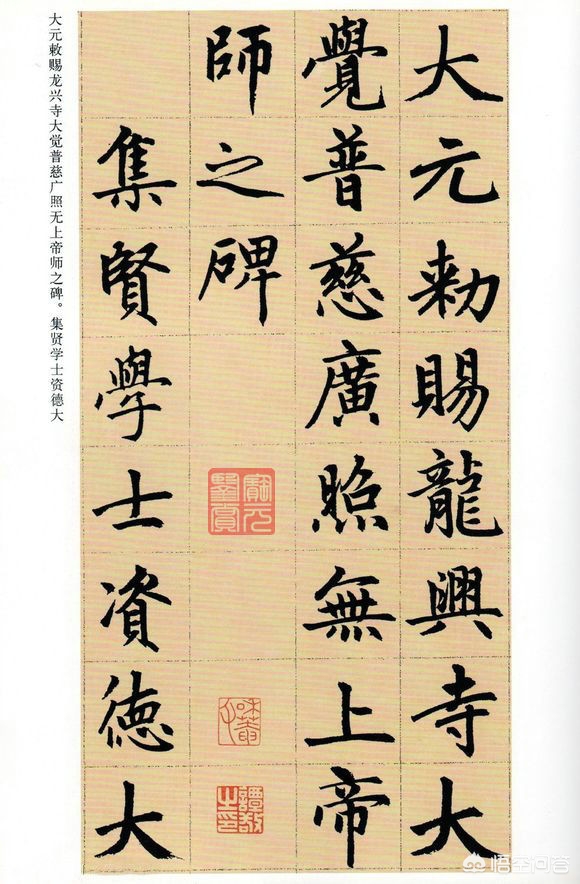 大元敕赐龙兴寺大觉普慈广照无上帝师之碑。集贤学士资德大
大元勅賜龍興寺大
覺普慈廣照無上帝
師之碑
集賢學士資德大
悟空问答